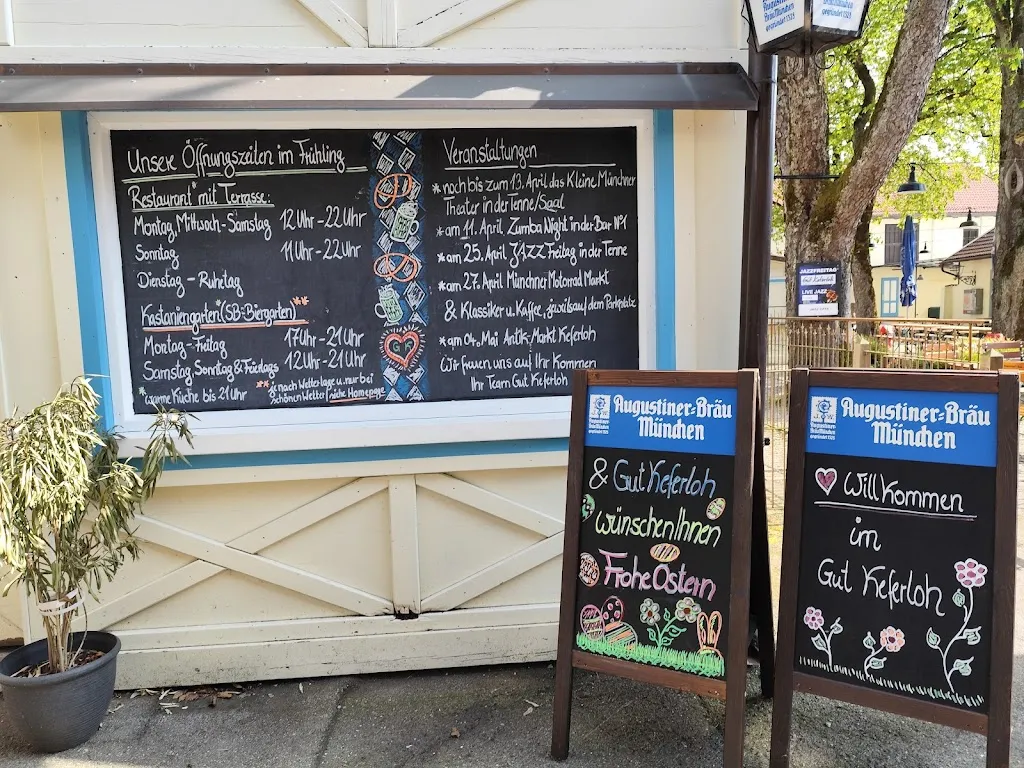 Unsere Öffnungszeiten im Frühling
Restaurant* mit Terrasse:
Montag, Mittwoch - Samstag 12 Uhr - 22 Uhr
Sonntag 11 Uhr - 22 Uhr
Dienstag - Ruhetag
Kastaniengarten (SB-Biergarten)**
Montag - Freitag 17 Uhr - 21 Uhr
Samstag, Sonntag & Feiertags 12 Uhr - 21 Uhr
*warme Küche bis 21 Uhr
** je nach Wetterlage u. nur bei
schönen Wetter / siehe Homepage
GK
Veranstaltungen
* noch bis zum 13. April das Kleine Münchner
Theater in der Tenne/Saal
* am 11. April Zumba Night in der Bar N°1
* am 25. April JAZZ Freitag in der Tenne
* am 27. April Münchner Motorrad Markt
& Klassiker u. Kaffee, jeweils auf dem Parkplatz
* am 04. Mai Antik-Markt Keferloh
Wir freuen uns auf Ihr Kommen
Ihr Team Gut Keferloh
Augustiner
Bräu München
gegründet 1328
JAZZFREITAG
Gut Keferloh
LIVE JAZZ
J. W.
Augustiner
Bräu München
gegründet 1328
Augustiner-Bräu
München
& Gut Keferloh
wünschen Ihnen
Frohe Ostern
J. W.
Augustiner
Bräu München
gegründet 1328
Augustiner-Bräu
München
Willkommen
im
Gut Keferloh